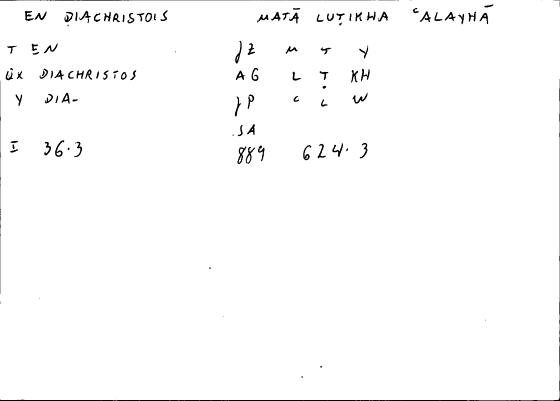 EN DIACHRISTOIS MATĀ LUṬIKHA ʿALAYHĀ
T EN JZ M T Y
ÜX DIACHRISTOS AG L Ṭ KH
Y DIA- JP ʿ L W
SA
I 36.3 889 624.3